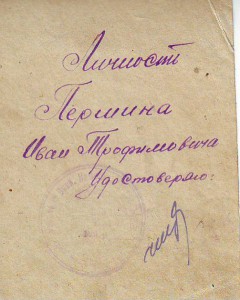 Личность
Пермина
Ивана Трофимовича
Удостоверяю: